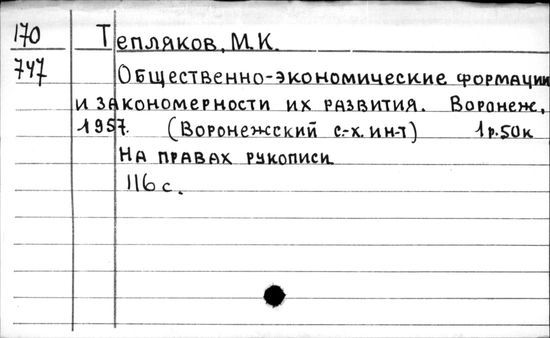 170 Тепляков, М.К.
747 Общественно-экономические формации
и закономерности их развития. Воронеж,
1957. (Воронежский с-х. ин-т) 1р.50к
На правах рукописи
116 с.